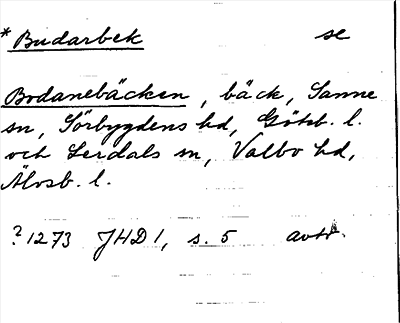 *Budarbek se
Bodanebäcken, bäck, Sanne
sn, Sörbygdens hd, Götb. l.
och Lerdals sn, Valbo hd,
Älvsb. l.
?1273 JHD 1, s. 5 avtr.